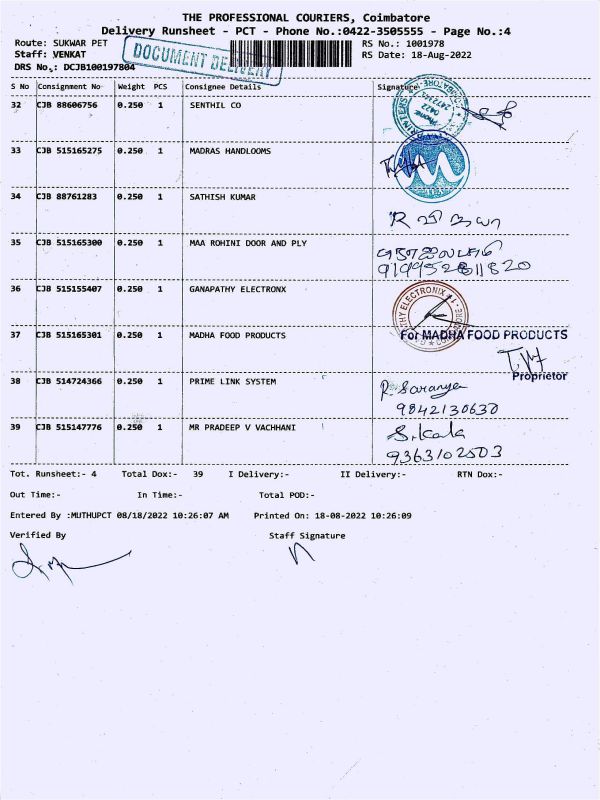 THE PROFESSIONAL COURIERS, Coimbatore
Delivery Runsheet - PCT - Phone No.:0422-3505555 - Page No.:4
Route: SUKWAR PET RS No.: 1001978
Staff: VENKAT DOCUMENT DELIVERY RS Date: 18-Aug-2022
DRS No.: DCJB100197804
S No Consignment No Weight PCS Consignee Details Signature
32 CJB 88606756 0.250 1 SENTHIL CO
33 CJB 515165275 0.250 1 MADRAS HANDLOOMS
34 CJB 88761283 0.250 1 SATHISH KUMAR
35 CJB 515165300 0.250 1 MAA ROHINI DOOR AND PLY
919952811820
36 CJB 515155407 0.250 1 GANAPATHY ELECTRONX
37 CJB 515165301 0.250 1 MADHA FOOD PRODUCTS For MADHA FOOD PRODUCTS
Proprietor
38 CJB 514724366 0.250 1 PRIME LINK SYSTEM R. Saranya
9842130630
39 CJB 515147776 0.250 1 MR PRADEEP V VACHHANI S. Kala
9363102503
Tot. Runsheet:- 4 Total Dox:- 39 I Delivery:- II Delivery:- RTN Dox:-
Out Time:- In Time:- Total POD:-
Entered By :MUTHUPCT 08/18/2022 10:26:07 AM Printed On: 18-08-2022 10:26:09
Verified By Staff Signature